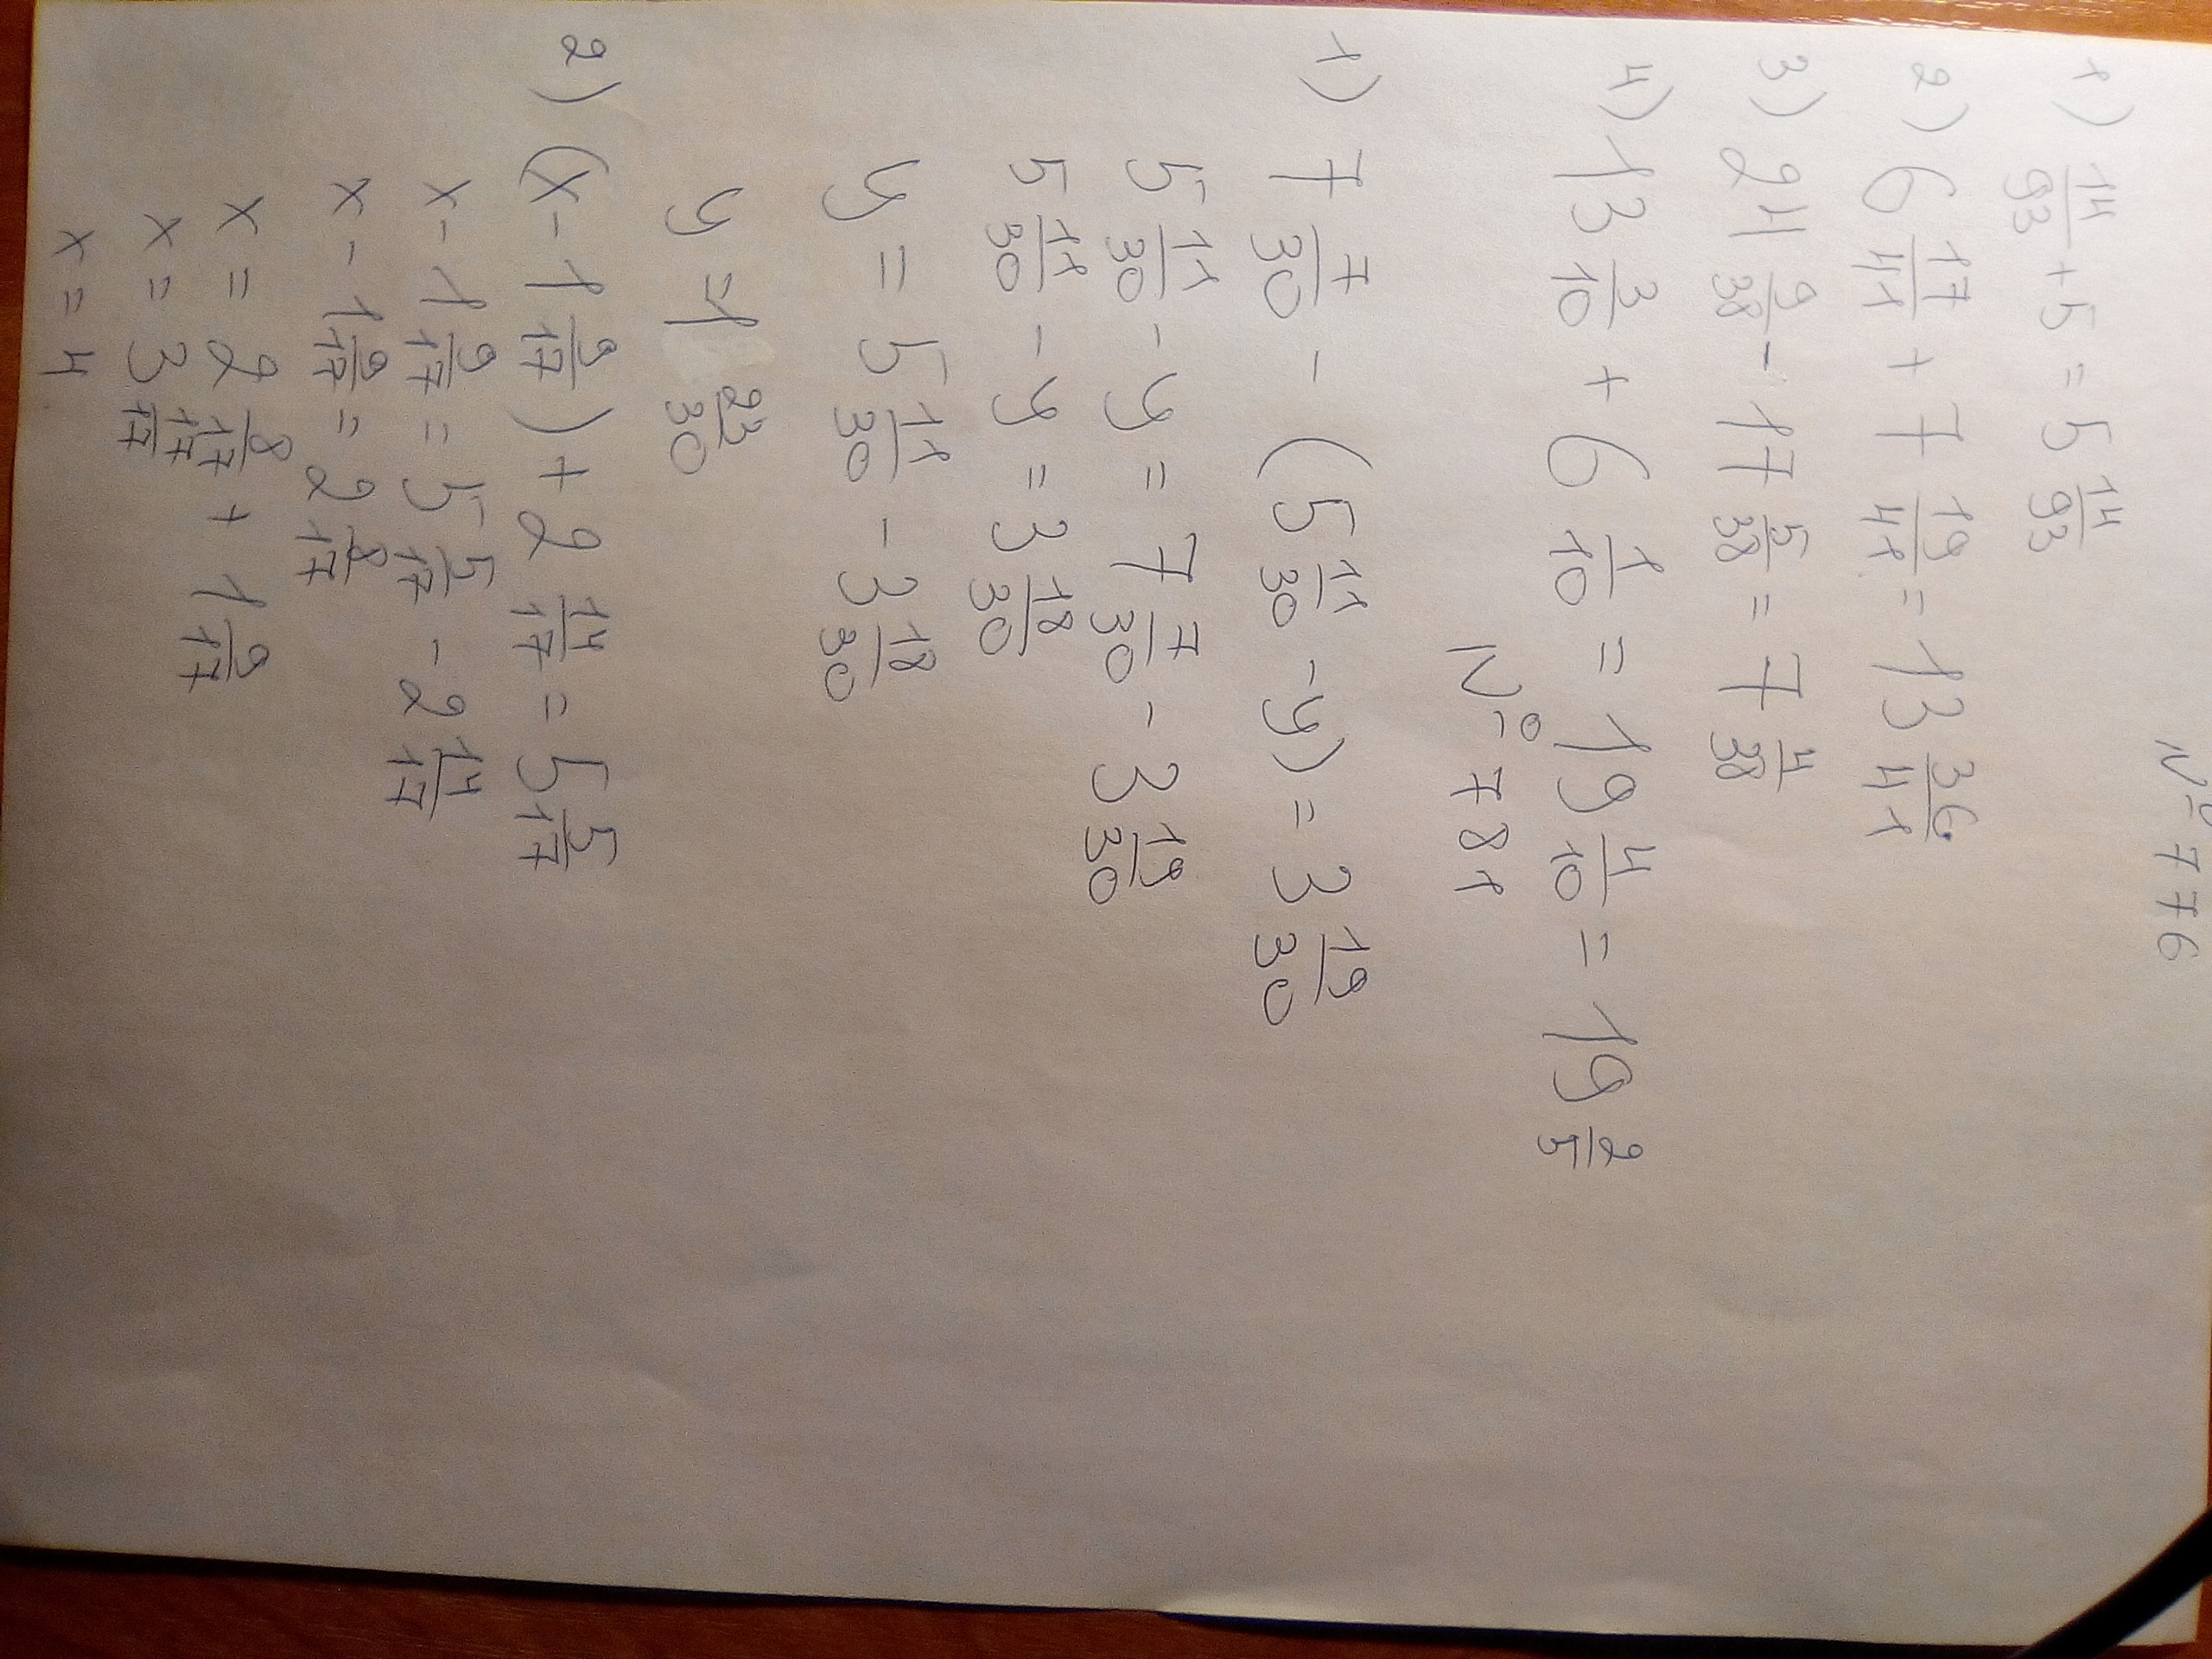 № 776
1) 14/93 + 5 = 5 14/93
2) 6 17/41 + 7 19/41 = 13 36/41
3) 24 9/38 - 17 5/38 = 7 4/38
4) 13 3/10 + 6 1/10 = 19 4/10 = 19 2/5
№ 781
1) 7 7/30 - (5 11/30 - y) = 3 19/30
5 11/30 - y = 7 7/30 - 3 19/30
5 11/30 - y = 3 18/30
y = 5 11/30 - 3 18/30
y = 1 23/30
2) (x - 1 9/17) + 2 14/17 = 5 5/17
x - 1 9/17 = 5 5/17 - 2 14/17
x - 1 9/17 = 2 8/17
x = 2 8/17 + 1 9/17
x = 3 17/17
x = 4